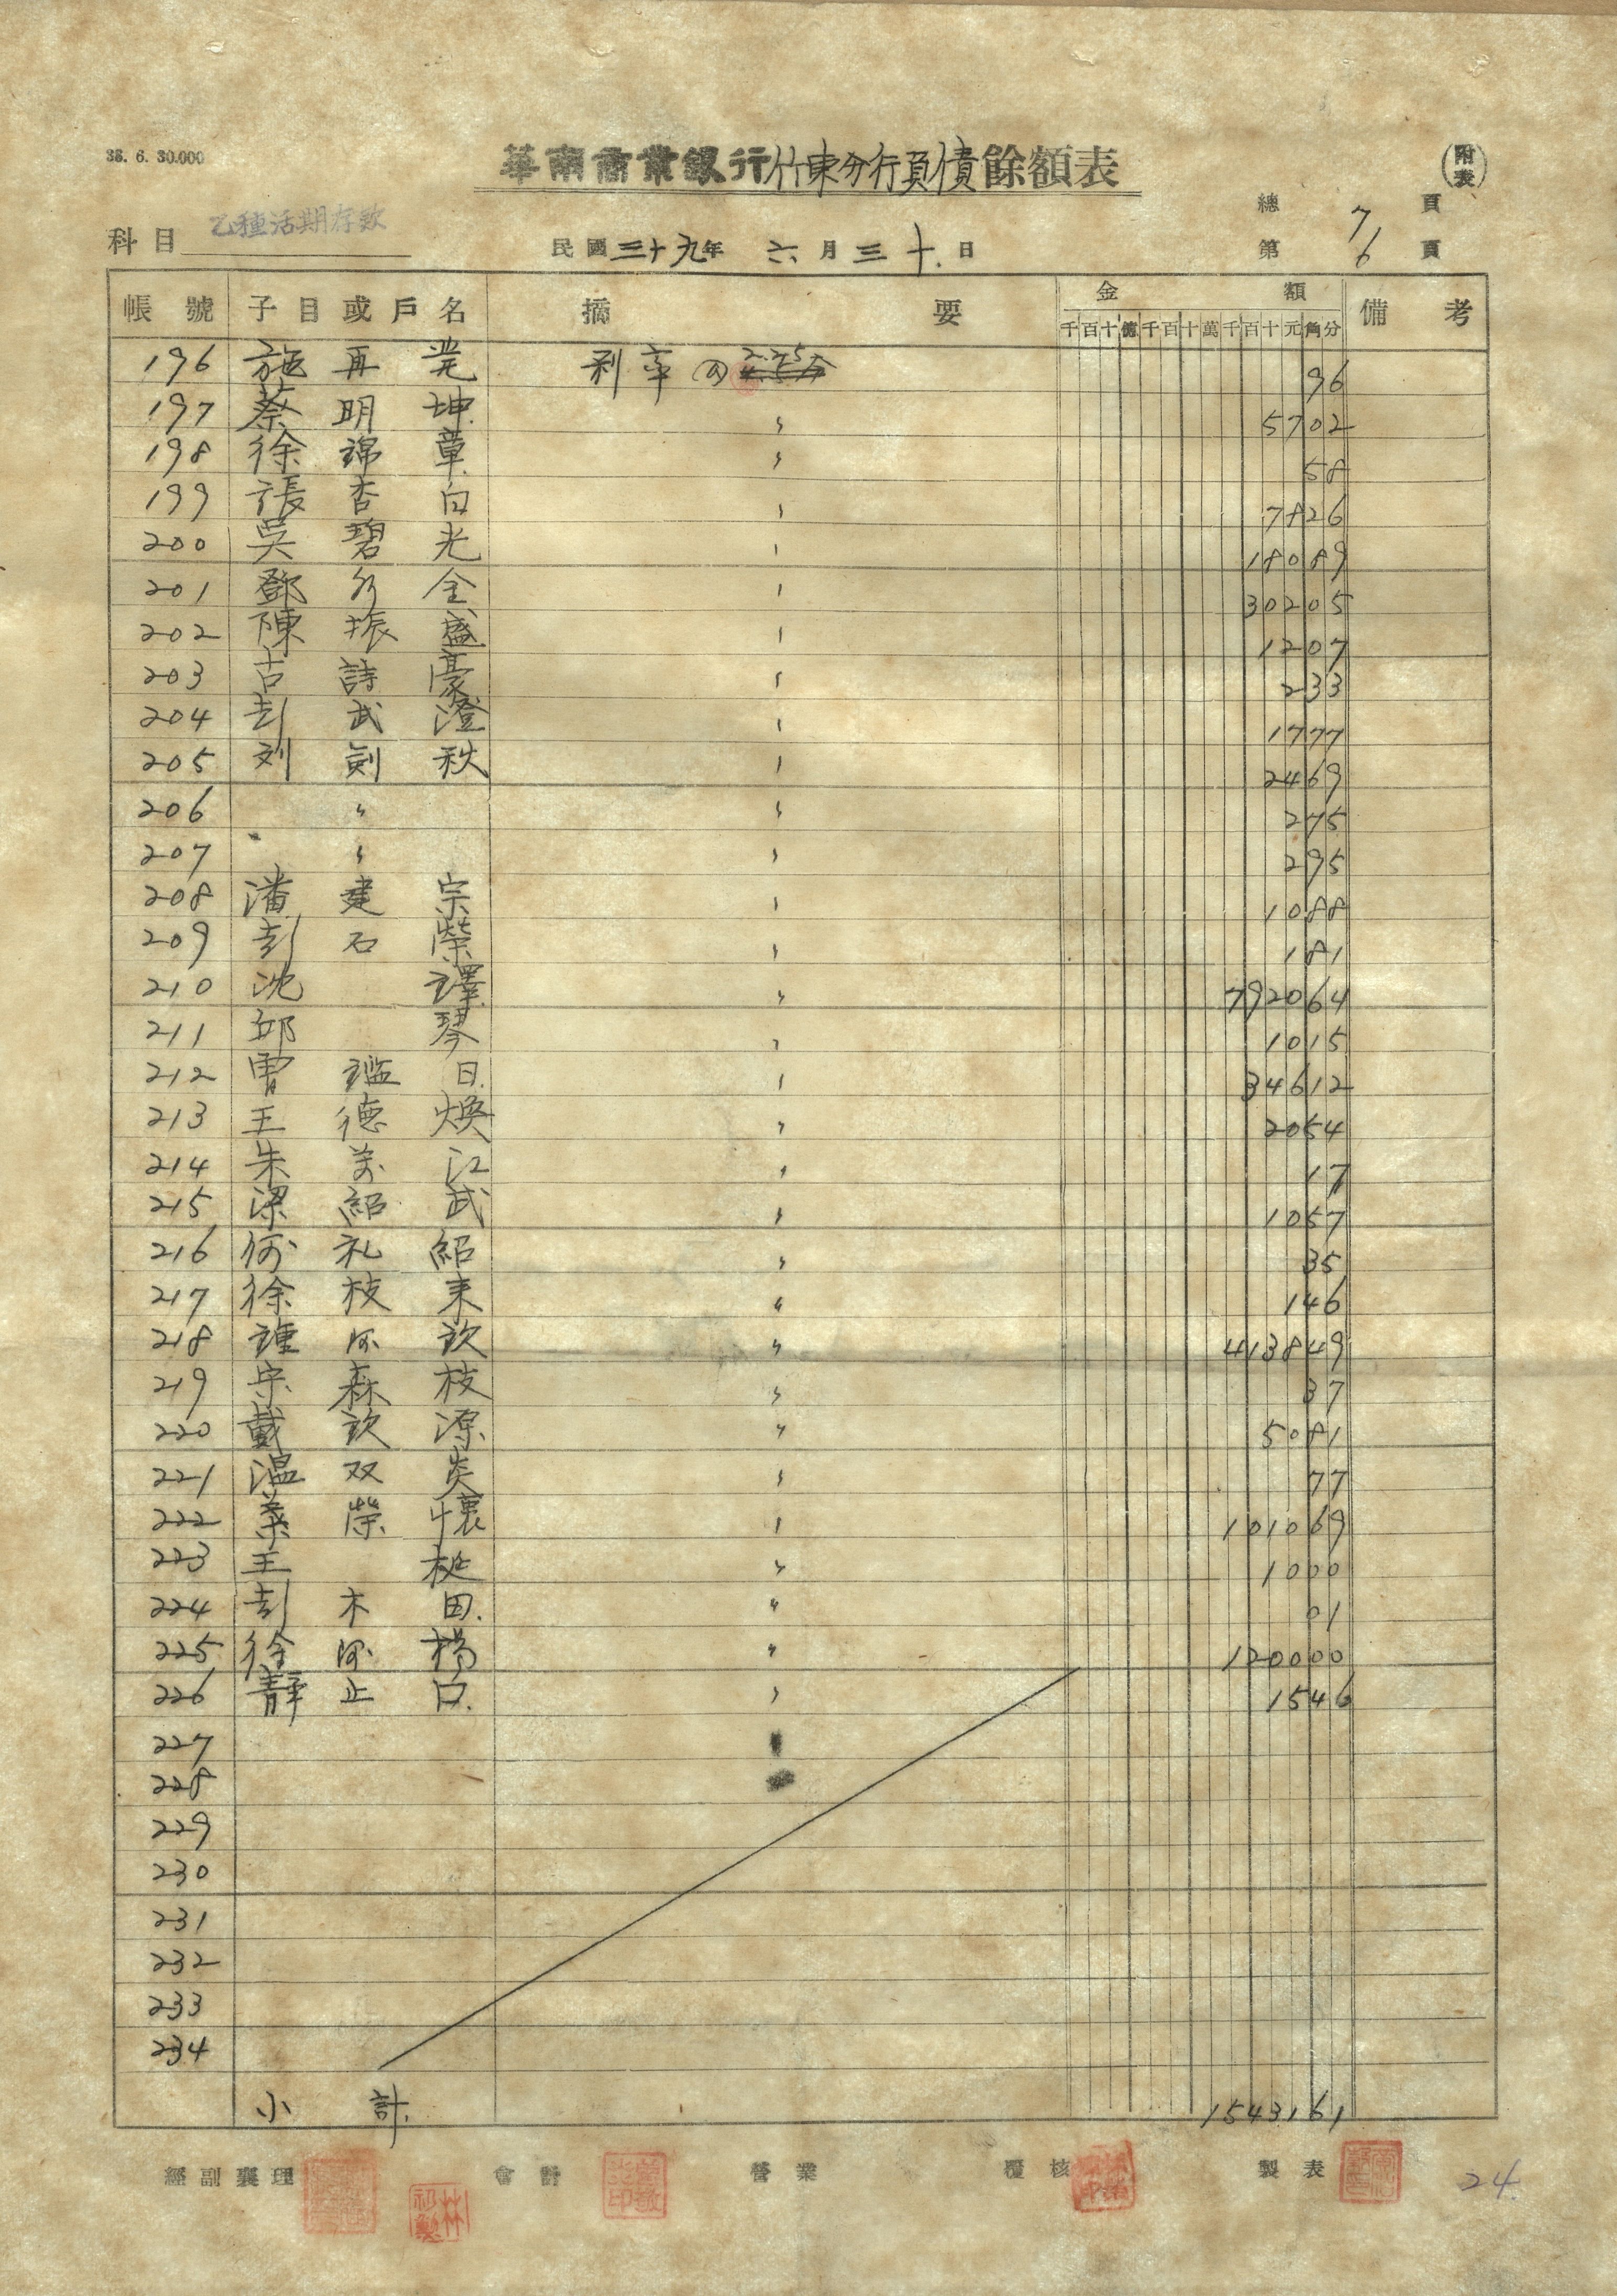 38. 6. 30.000
華南商業銀行竹東分行負債餘額表
(附表)
總 7 頁
科目 乙種活期存款
民國三十九年 六月三十日
第 6 頁
帳號 子目或戶名 摘要 金額 備考
千百十億千百十萬千百十元角分
196 施再 利率 2.25 96
197 蔡明坤 〃 5702
198 徐錦章 〃 58
199 張杏白 〃 7826
200 吳碧光 〃 18089
201 鄧 金 〃 30205
202 陳振盛 〃 1207
203 古詩豪 〃 233
204 彭武澄 〃 1777
205 刘劍秋 〃 2469
206 〃 〃 275
207 〃 〃 295
208 潘建宗 〃 1088
209 彭石榮 〃 181
210 沈 〃 792064
211 邱琴 〃 1015
212 曾 日 〃 34612
213 王德煥 〃 2054
214 朱 江 〃 17
215 梁紹武 〃 1057
216 何礼紹 〃 35
217 徐枝 〃 146
218 鍾 欽 〃 413849
219 宗森枝 〃 37
220 戴欽源 〃 5081
221 溫双炎 〃 77
222 葉榮懷 〃 101069
223 王 〃 1000
224 彭木田 〃 01
225 徐 楊 〃 120000
226 靜止口 〃 1546
227
228
229
230
231
232
233
234
小計 1543161
經副襄理 會計 營業 覆核 製表
24